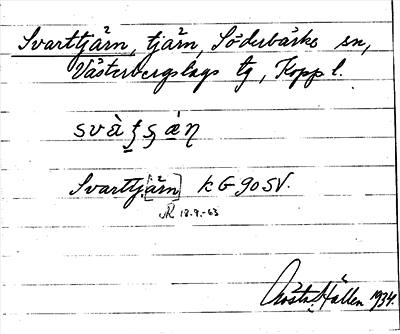 Svarttjärn, tjärn, Söderbärke sn,
Västerbergslags tg, Kopp l.
Svarttj[ärn] k G 90 SV.
18.9.-63
Hällen 1934.